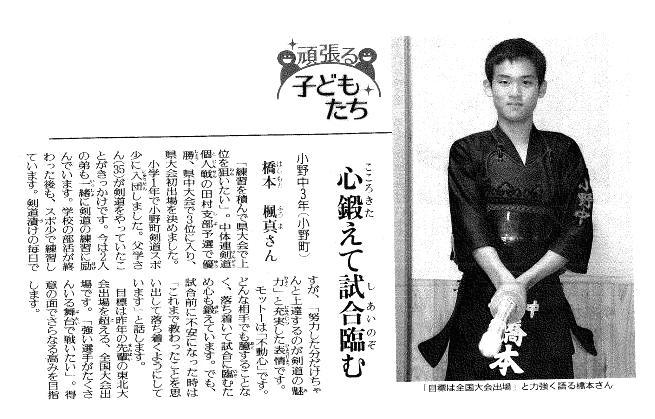 頑張る
子ども
たち
心鍛えて試合臨む
こころきた
し あいのぞ
小野中3年(小野町)
橋本 楓真さん
はしもと ふうま
「練習を積んで県大会で上
位を狙いたい」。中体連剣道
個人戦の田村支部予選で優
勝、県中大会で3位に入り、
県大会初出場を決めました。
小学1年で小野町剣道スポ
少に入団しました。父学さ
ん(35)が剣道をやっていたこ
とがきっかけです。今は2人
の弟も一緒に剣道の練習に励
んでいます。学校の部活が終
わった後も、スポ少で練習し
ています。剣道漬けの毎日で
すが、「努力した分だけちゃ
んと上達するのが剣道の魅
力」と充実した表情です。
モットーは「不動心」です。
どんな相手でも臆することな
く、落ち着いて試合に臨むた
め心も鍛えています。でも、
試合前に不安になった時は
「これまで教わったことを思
い出して落ち着くようにして
います」と話します。
目標は昨年の先輩の東北大
会出場を超える、全国大会出
場です。「強い選手がたくさ
んいる舞台で戦いたい」。得
意の面でさらなる高みを目指
します。
小野中
中
橋本
「目標は全国大会出場」と力強く語る橋本さん